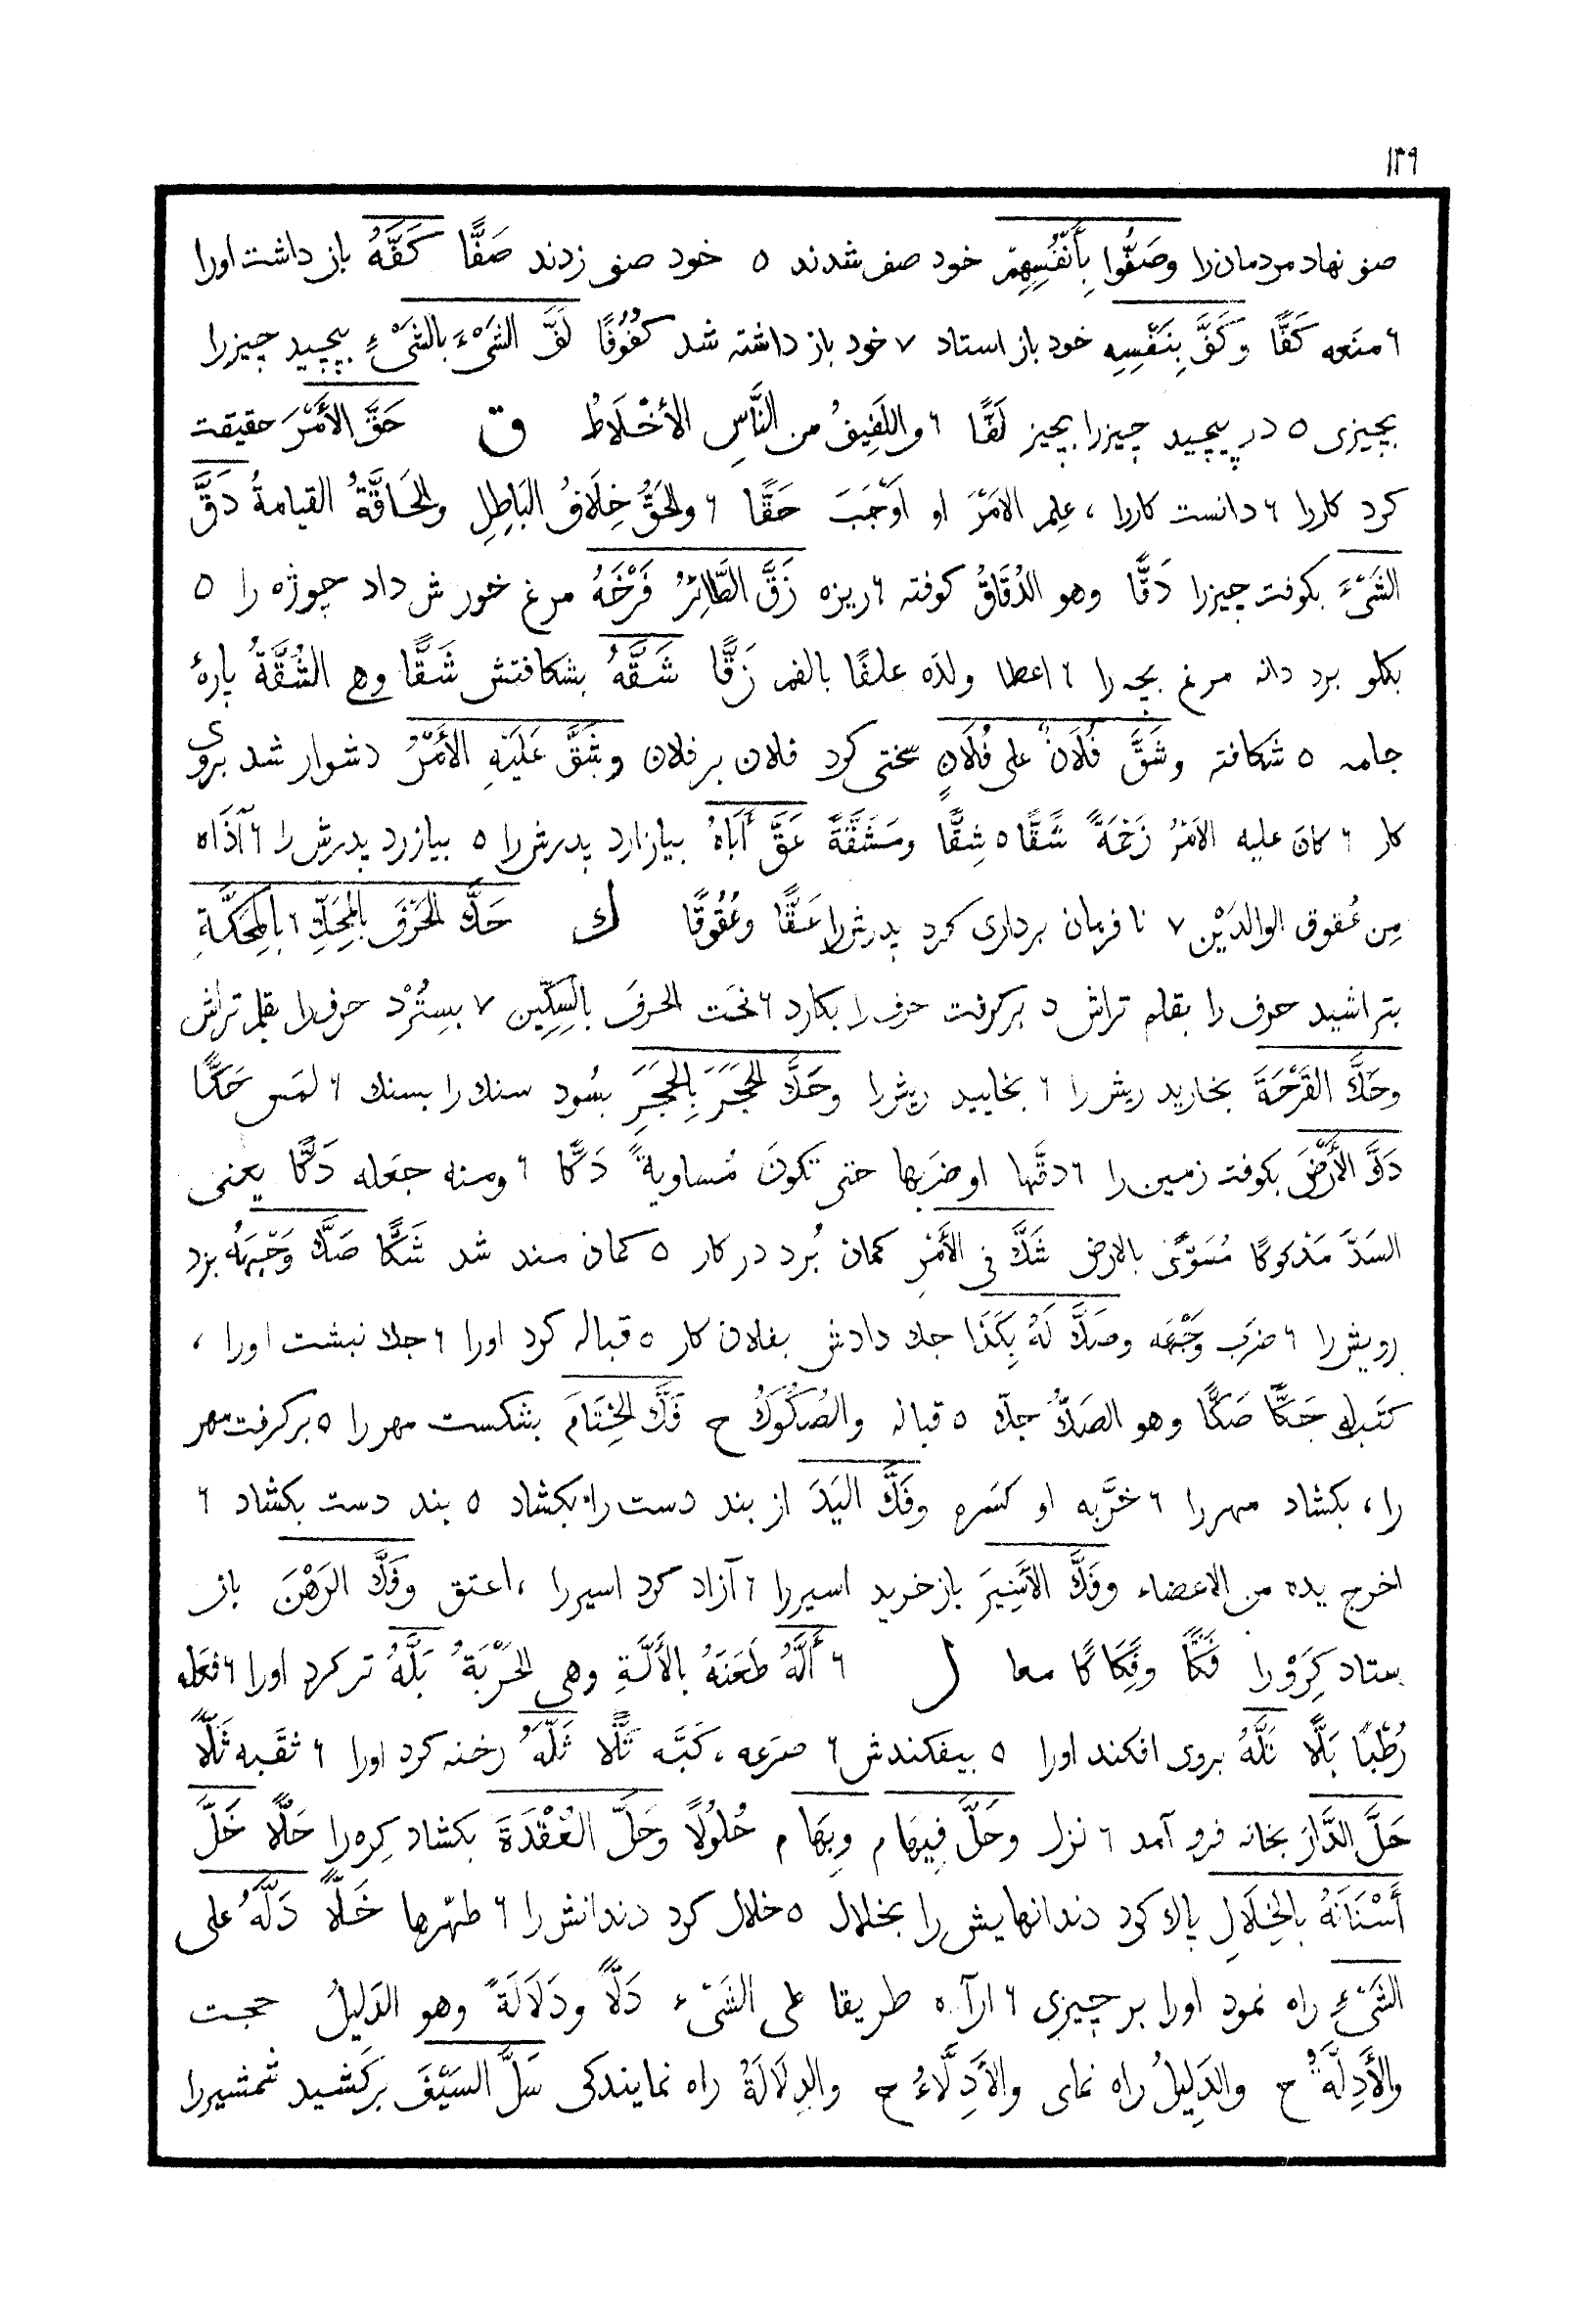 ١٣٩
صف نهاد مردمان را وصَفُّوا بِأَنْفُسِهِمْ خود صف شدند ٥ خود صف زدند صَفًّا كَفَّهُ باز داشت اورا
٦ منَعه كَفًّا وَكَفَّ بِنَفْسِهِ خود باز استاد ٧ خود باز داشته شد كُفُوفًا لَفَّ الشَىْءَ بالشَىْءِ بپچيد چيزرا
بچيزى ٥ در پيچيد چيزرا بچيز لَفًّا ٦ و اللَفِيفُ من النَّاسِ الأخْلَاطُ ق حَقَّ الأَمْرَ حقيقت
كرد كاررا ٦ دانست كاررا ، عِلم الامَرْ او اَوْجَبَ حَقًّا ٦ والحَقُّ خِلَافُ البَاطِلِ والحَاقَّةُ القيامةُ دَقَّ
الشَىْءَ بكوفت چيزرا دَقًّا وهو الدُقَاقُ كوفته ٦ ريزه زَقَّ الطَّائِرُ فَرْخَهُ مرغ خورش داد چوژه را ٥
بكلو برد دانه مرغ بچه را ٦ اعطا ولدَه علفًا بالفم زَقًّا شَقَّهُ بشكافتش شَقًّا وهى الشُقَّةُ پارۀ
جامه ٥ شكافته وشَقَّ فُلَانٌ على فُلَانٍ سختى كرد فلان بر فلان وشَقَّ عَلَيْهِ الأَمْرُ دشوار شد بروى
كار ٦ كان عليه الامْرُ زَحْمَةً شَقًّا ٥ شِقًّا ومَشَقَّةً عَقَّ أَبَاهُ بيازارد پدرش را ٥ بيازرد پدرش را ٦ آذَاه
مِن عُقوق الوالدَيْن ٧ نا فرمان بردارى كرد پدرش را عَقًّا وعُقُوقًا ك حَكَّ الحَرْفَ بالمِحَكِّ ٦ بالمِحَكَّةِ
بتراشيد حرف را بقلم تراش د بر كرفت حرف را بكارد ٦ نحَت الحرفَ بالسِكِّين ٧ بسِتُرْد حرف را بقلم تراش
وحَكَّ القَرْحَةَ بخاريد ريش را ٦ بخاييد ريش را وحَكَّ الحَجَرَ بِالحَجَرِ بسُود سنك را بسنك ٦ لمَس حَكًّا
دَكَّ الأَرْضَ بكوفت زمين را ٦ دقَّها او ضربها حتى تكونَ مُساويةً دَكًّا ٦ ومنه جعَله دَكًّا يعنى
السَدَّ مَدْكوكًا مُسَوًّى بالارض شَكَّ فى الأَمْرِ كمان بُرد در كار ٥ كمان مند شد شَكًّا صَكَّ وَجْهَهُ بزد
رويش را ٦ ضرَب وَجْهَه وصَكَّ لَهُ بِكَذَا جك دادش بفلان كار ٥ قباله كرد اورا ٦ جك نبشت اورا ،
كتَب له جَكًّا صَكًّا وهو الصَكُّ جكّ ٥ قباله والصُكُوكُ ح فَكَّ الخِتَامَ بشكست مهر را ٥ بر كرفت مهر
را ، بكشاد مهررا ٦ خرَّبه او كسَره وفَكَّ اليَدَ از بند دست را بكشاد ٥ بند دست بكشاد ٦
اخرج يده من الاعضاء وفَكَّ الأَسِيرَ باز خريد اسيررا ٦ آزاد كرد اسيررا ، اعتق وفَكَّ الرَهْنَ باز
ستاد كِرَوْ را فَكًّا وفَِكَاكًا معا ل ٦ أَلَّهُ طَعَنَهُ بالأَلَّةِ وهى الحَرْبَةُ بَلَّهُ تر كرد اورا ٦ فعَله
رُطْبًا بَلًّا تَلَّهُ بروى افكند اورا ٥ بيفكندش ٦ صرَعه ، كَبَّه تَلًّا ثَلَّهُ رخنه كرد اورا ٦ ثقَبه ثَلًّا
حَلَّ الدَّارَ بخانه فرو آمد ٦ نزل وحَلَّ فِيهَا م وبِهَا م حُلُولًا وَحَلَّ العُقْدَةَ بكشاد كِره را حَلًّا خَلَّ
أَسْنَانَهُ بالخِلَالِ پاك كرد دندانهايش را بخلال ٥ خلال كرد دندانش را ٦ طهّرها خَلًّا دَلَّهُ على
الشَىْءِ راه نمود اورا بر چيزى ٦ ارآه طريقا على الشَىْء دَلًّا ودَلَالَةً وهو الدَلِيلُ حجت
والأَدِلَّةُ ح والدَلِيلُ راه نماى والأَدِلَّاءُ ح والدِلَالَةُ راه نمايندكى سَلَّ السَيْفَ بركشيد شمشيررا